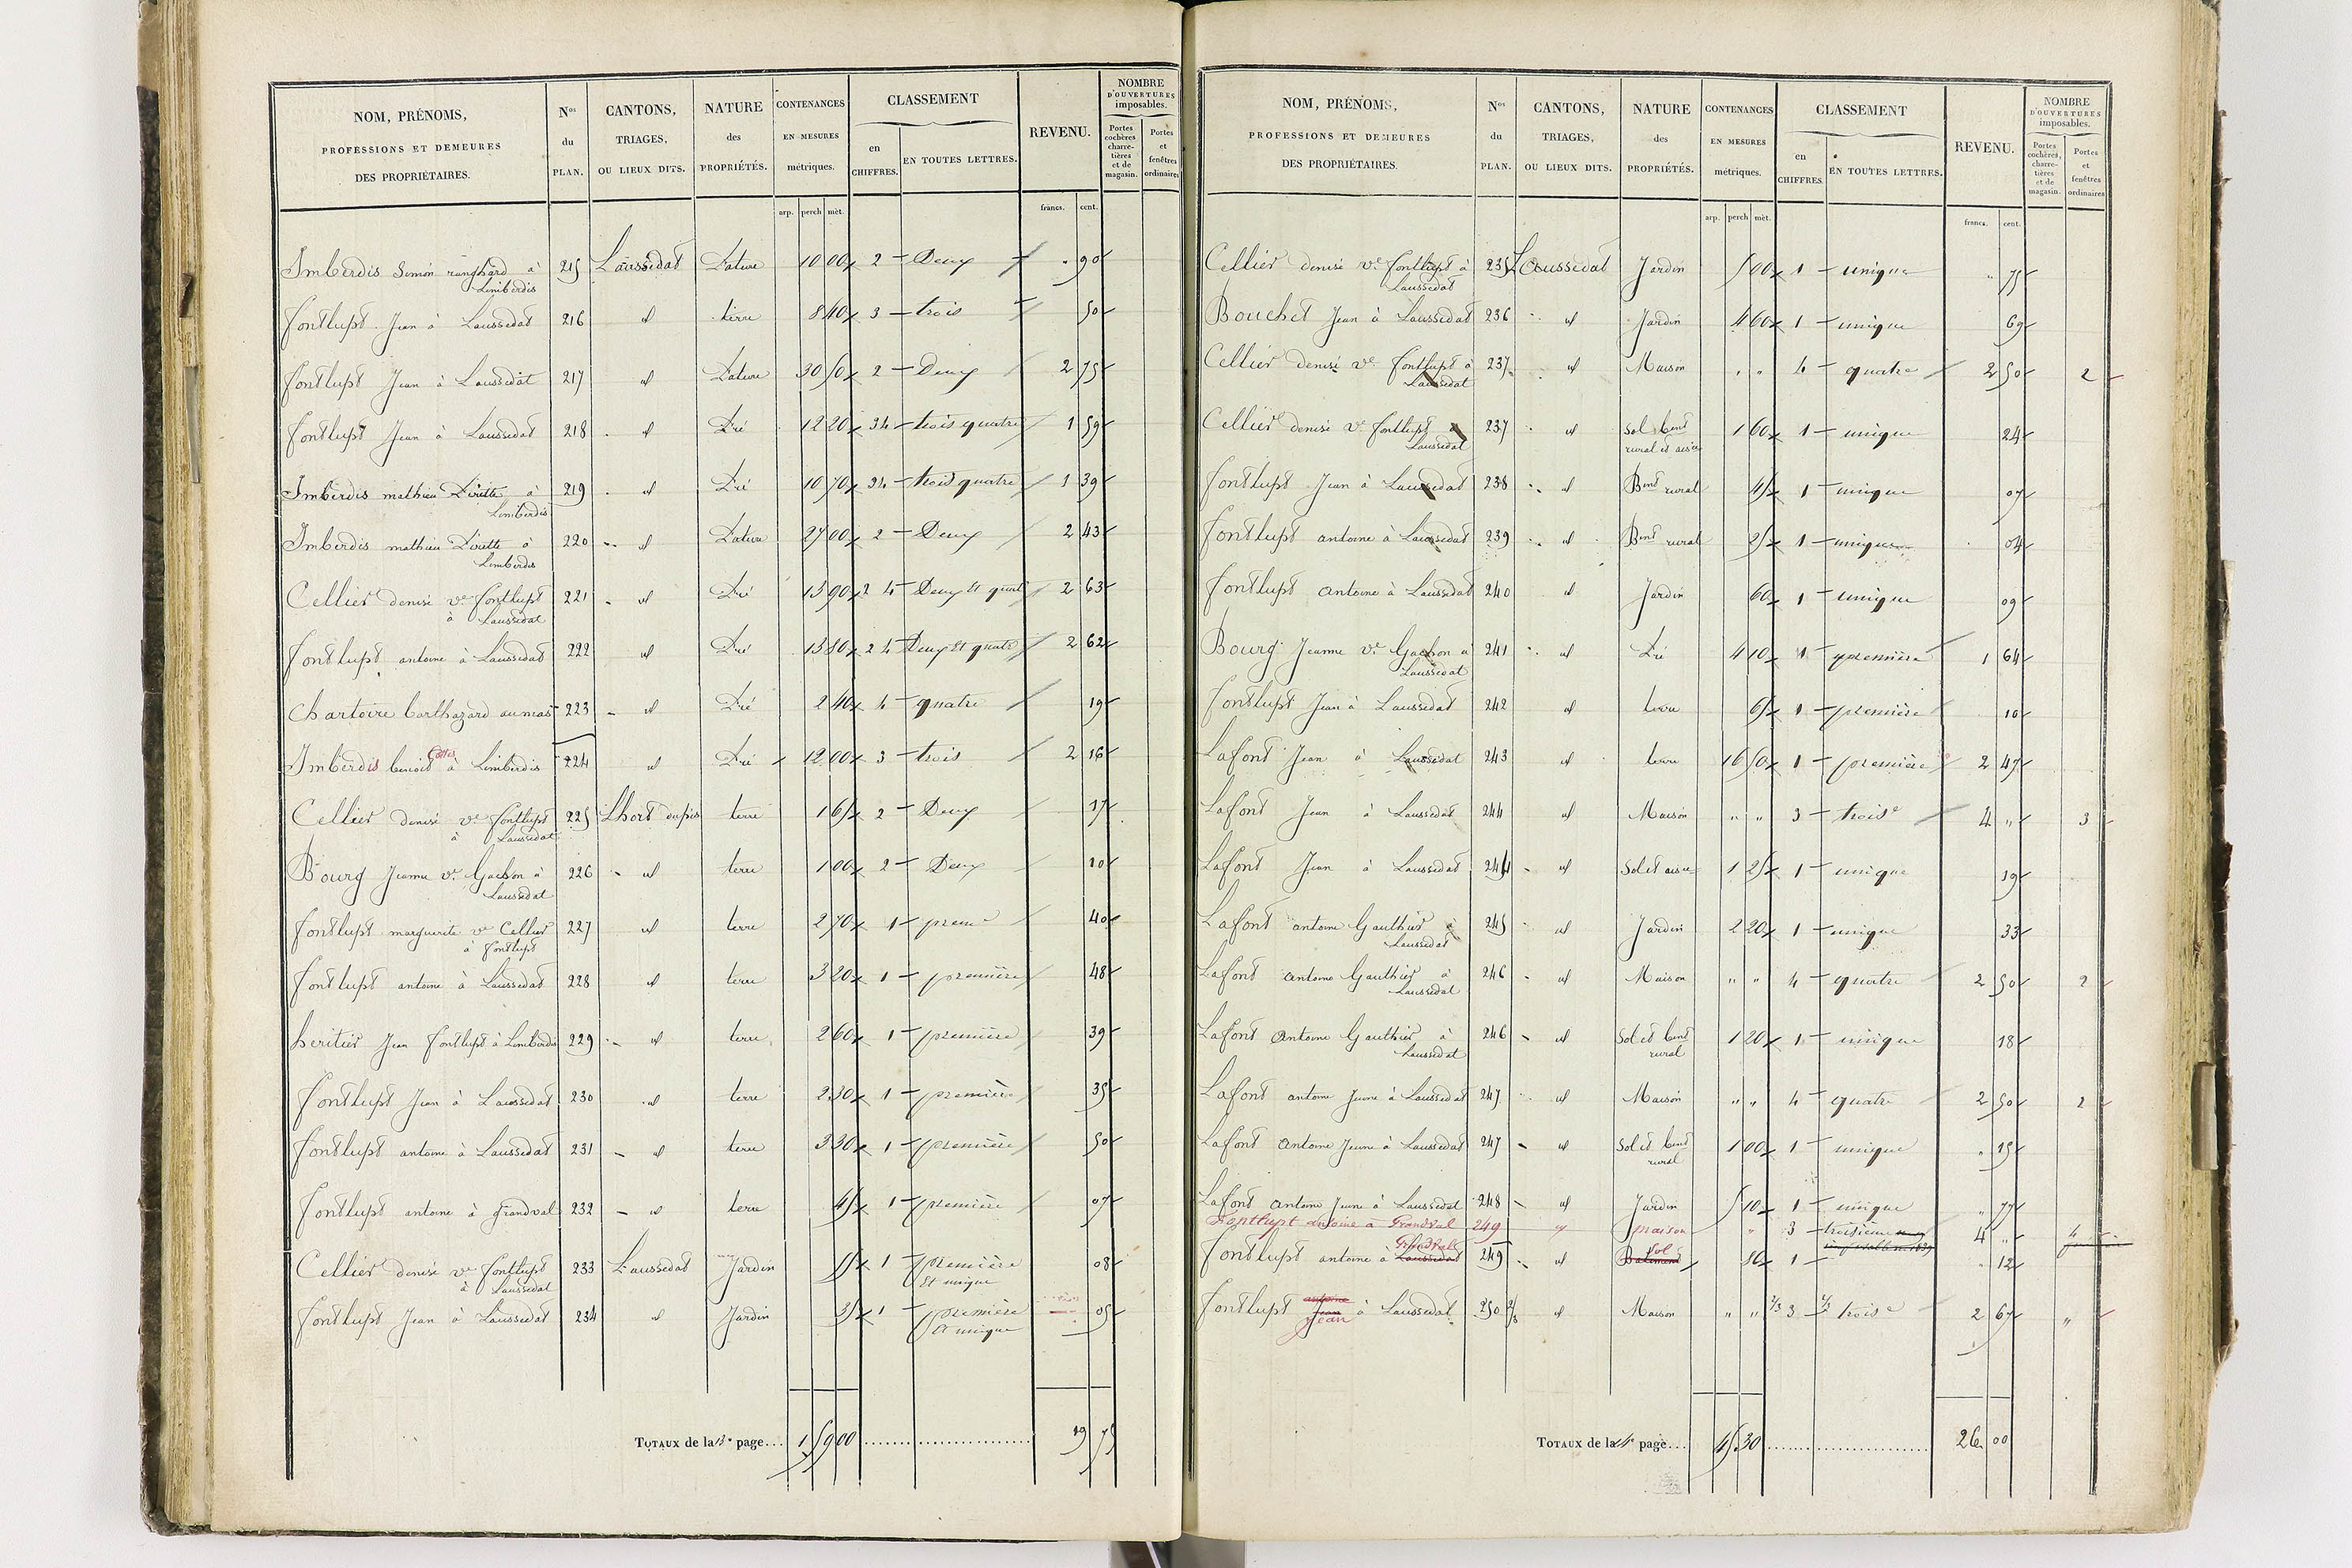 NOM, PRÉNOMS, PROFESSIONS ET DEMEURES DES PROPRIÉTAIRES. Nos du PLAN. CANTONS, TRIAGES, OU LIEUX DITS. NATURE des PROPRIÉTÉS. CONTENANCES EN MESURES métriques. CLASSEMENT en CHIFFRES. EN TOUTES LETTRES. REVENU. NOMBRE D'OUVERTURES imposables. Portes cochères charre-tières et de magasin. Portes et fenêtres ordinaires
arp. perch mèt. francs. cent.
Imberdis Simon à Limberdis 215 Laussedat Pature 10 00 2 Deux " 90
fontlupt Jean à Laussedat 216 id terre 8 40 3 trois 50
fontlupt Jean à Laussedat 217 id Pature 30 50 2 Deux 2 75
fontlupt Jean à Laussedat 218 id Pré 12 20 34 trois quatre 1 59
Imberdis mathieu Pirette à Limberdis 219 id Pré 10 70 34 trois quatre 1 39
Imberdis mathieu Pirette à Limberdis 220 id Pature 27 00 2 Deux 2 43
Cellier denise ve fontlupt à Laussedat 221 id Pré 13 90 2 4 Deux et quatre 2 63
fontlupt antoine à Laussedat 222 id Pré 13 80 2 4 Deux et quatre 2 62
Chartoire barthazard au mas 223 id Pré 2 40 4 quatre 19
Imberdis benoit à Limberdis 224 id Pré 12 00 3 trois 2 16
Cellier denise ve fontlupt à Laussedat 225 Lhort dupis terre 1 65 2 Deux 17
Bourg Jeanne ve Gachon à Laussedat 226 id terre 1 00 2 Deux 10
fontlupt marguerite ve Cellier à fontlupt 227 id terre 2 70 1 prem 40
fontlupt antoine à Laussedat 228 id terre 3 20 1 première 48
heritier Jean fontlupt à Limberdis 229 id terre 2 60 1 première 39
fontlupt Jean à Laussedat 230 id terre 2 30 1 première 35
fontlupt antoine à Laussedat 231 id terre 3 30 1 première 50
fontlupt antoine à grandval 232 id terre 45 1 première 07
Cellier denise ve fontlupt à Laussedat 233 Laussedat Jardin 55 1 première Et unique 08
fontlupt Jean à Laussedat 234 id Jardin 35 1 première Et unique 05
TOTAUX de la 13e page... 1 59 00 19 75
NOM, PRÉNOMS, PROFESSIONS ET DEMEURES DES PROPRIÉTAIRES. Nos du PLAN. CANTONS, TRIAGES, OU LIEUX DITS. NATURE des PROPRIÉTÉS. CONTENANCES EN MESURES métriques. CLASSEMENT en CHIFFRES. EN TOUTES LETTRES. REVENU. NOMBRE D'OUVERTURES imposables. Portes cochères, charre-tières et de magasin. Portes et fenêtres ordinaires
arp. perch mèt. francs. cent.
Cellier denise ve fontlupt à Laussedat 235 Laussedat Jardin 5 00 1 unique " 75
Bouchet Jean à Laussedat 236 id Jardin 4 60 1 unique 69
Cellier denise ve fontlupt à Laussedat 237 id Maison " " 4 quatre 2 50 2
Cellier denise ve fontlupt à Laussedat 237 id sol bent rural et aisce 1 60 1 unique 24
fontlupt Jean à Laussedat 238 id Bent rural 45 1 unique 07
fontlupt antoine à Laussedat 239 id Bent rural 25 1 unique 04
fontlupt antoine à Laussedat 240 id Jardin 60 1 unique 09
Bourg Jeanne ve Gachon à Laussedat 241 id Pré 4 10 1 première 1 64
fontlupt Jean à Laussedat 242 id terre 65 1 première 10
Lafont Jean à Laussedat 243 id terre 16 50 1 première 2 47
Lafont Jean à Laussedat 244 id Maison " " 3 trois 4 " 3
Lafont Jean à Laussedat 244 id Sol et aisce 1 25 1 unique 19
Lafont antoine Gauthier à Laussedat 245 id Jardin 2 20 1 unique 33
Lafont antoine Gauthier à Laussedat 246 id Maison " " 4 quatre 2 50 2
Lafont antoine Gauthier à Laussedat 246 id Sol et bent rural 1 20 1 unique 18
Lafont antoine Jeune à Laussedat 247 id Maison " " 4 quatre 2 50 2
Lafont antoine Jeune à Laussedat 247 id Sol et bent rural 1 00 1 unique " 15
Lafont antoine Jeune à Laussedat 248 id Jardin 5 10 1 unique " 77
Fontlupt antoine à Grandval 249 id maison " 3 troisième 4 " 4
fontlupt antoine à Laussedat Grandval 249 id Batiment Sol 80 1 " 12
fontlupt antoine Jean Jean à Laussedat 250 2/3 id Maison " " 2/3 3 2/3 trois 2 67 "
TOTAUX de la 14e page... 45 30 26 00